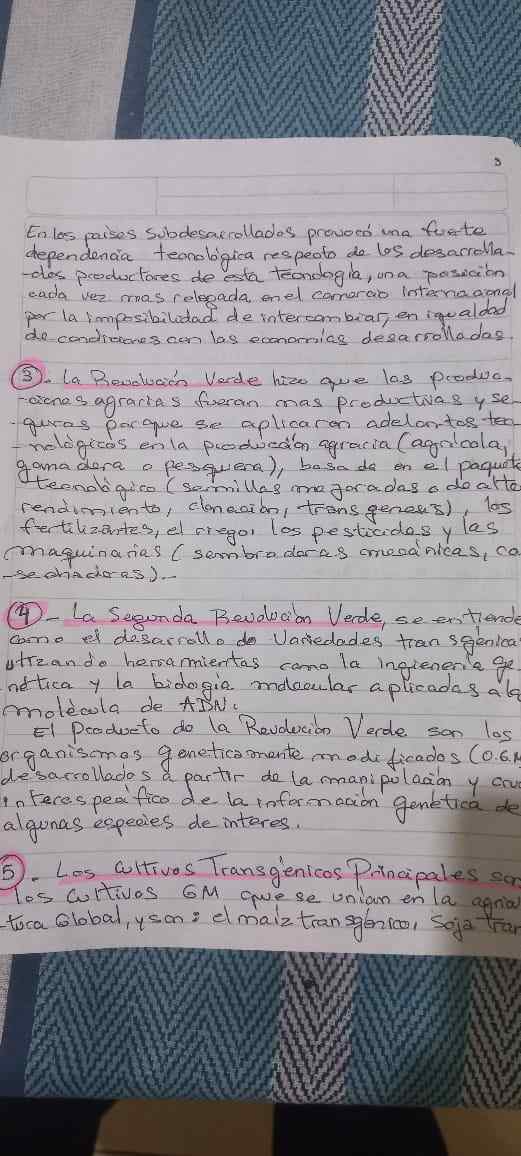 3
En los paises subdesarrollados provocó una fuerte
dependencia tecnológica respecto de los desarrolla-
-dos productores de esta tecnología, una posición
cada vez mas relegada en el comercio Internacional
por la imposibilidad de intercambiar, en igualdad
de condiciones con las economías desarrolladas.
3. La Revolución Verde hizo que las produc-
-ciones agrarias fueran mas productivas y se-
-guras porque se aplicaron adelantos tec-
-nológicos en la producción agraria (agrícola,
ganadera o pesquera), basada en el paquete
tecnológico (semillas mejoradas o de alto
rendimiento, clonación, transgenesis), los
fertilizantes, el riego, los pesticidas y las
maquinarias (sembradoras mecánicas, co
-sechadoras).-
4- La Segunda Revolución Verde, se entiende
como el desarrollo de Variedades transgénica
utizando herramientas como la Ingieneria ge
nética y la biología molecular aplicadas a la
molécula de ADN.
El Producto de la Revolución Verde son los
organismos geneticamente modificados (O.G.M
desarrollados a partir de la manipulación y cruc
interespecífico de la información genética de
algunas especies de interes.
5. Los Cultivos Transgénicos Principales son
los Cultivos GM que se en la agricu
-tura Global, y son: el maíz transgénico, Soja tran